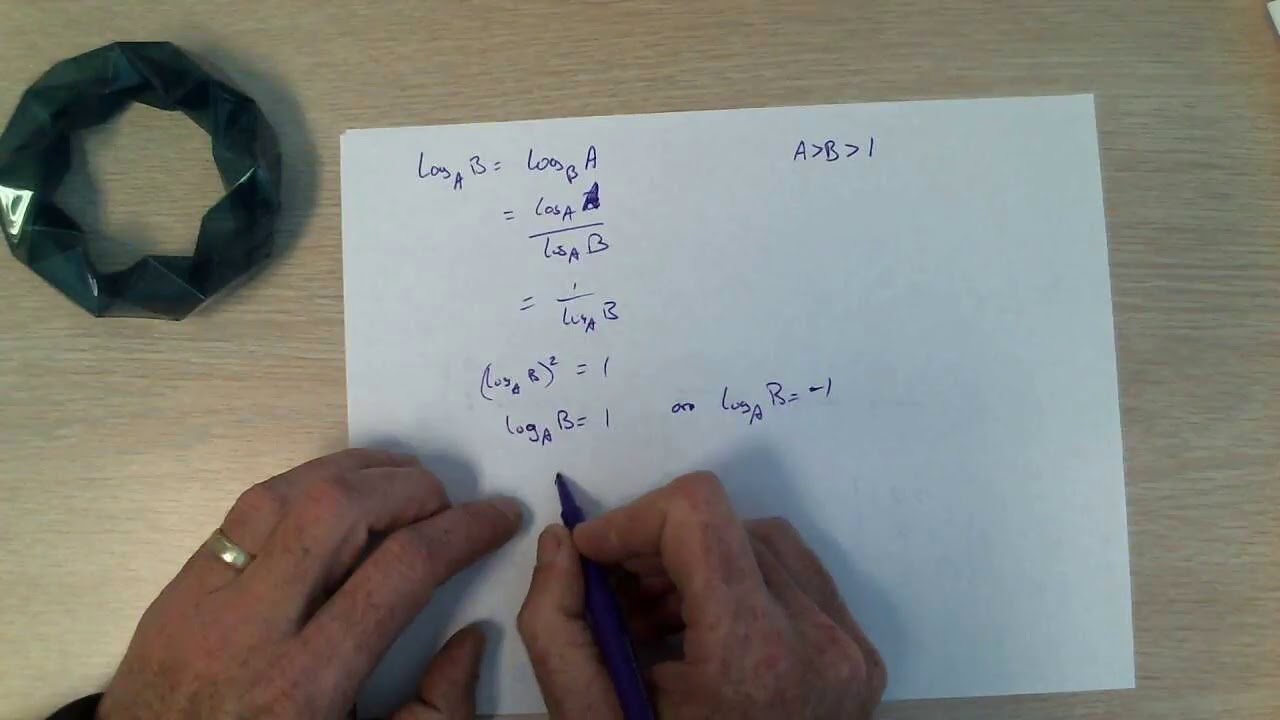 log_A B = log_B A    A > B > 1
= log_A A / log_A B
= 1 / log_A B
(log_A B)² = 1
log_A B = 1 or log_A B = -1